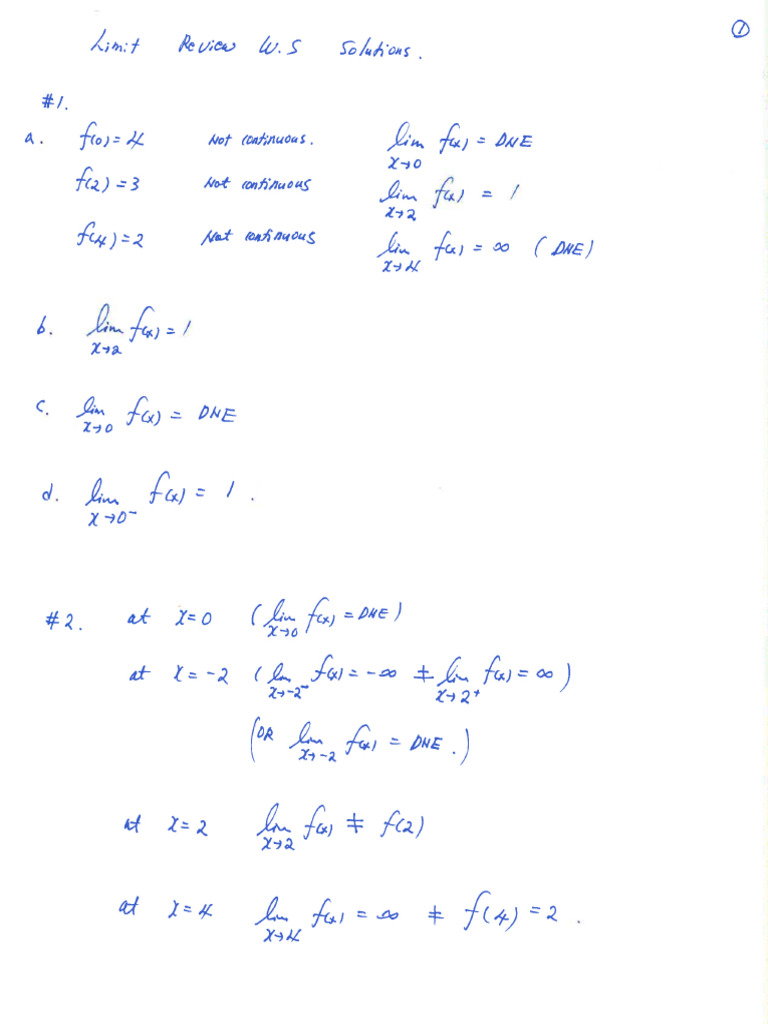 ①
Limit Review W.S Solutions.
#1.
a. f(0)=4 Not continuous. lim x→0 f(x) = DNE
f(2)=3 Not continuous lim x→2 f(x) = 1
f(4)=2 Not continuous lim x→4 f(x) = ∞ (DNE)
b. lim x→2 f(x) = 1
c. lim x→0 f(x) = DNE
d. lim x→0⁻ f(x) = 1.
#2. at x=0 (lim x→0 f(x) = DNE)
at x=-2 (lim x→-2⁻ f(x) = -∞ ≠ lim x→2⁺ f(x) = ∞)
(OR lim x→-2 f(x) = DNE.)
at x=2 lim x→2 f(x) ≠ f(2)
at x=4 lim x→4 f(x) = ∞ ≠ f(4)=2.